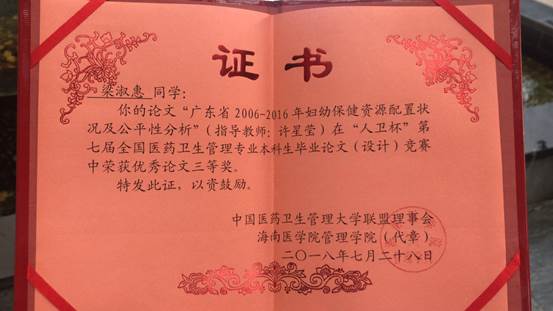 证书
梁淑惠 同学：
你的论文“广东省2006-2016年妇幼保健资源配置状
况及公平性分析”（指导教师：许星莹）在“人卫杯”第
七届全国医药卫生管理专业本科生毕业论文（设计）竞赛
中荣获优秀论文三等奖。
特发此证，以资鼓励。
中国医药卫生管理大学联盟理事会
海南医学院管理学院（代章）
二〇一八年七月二十八日